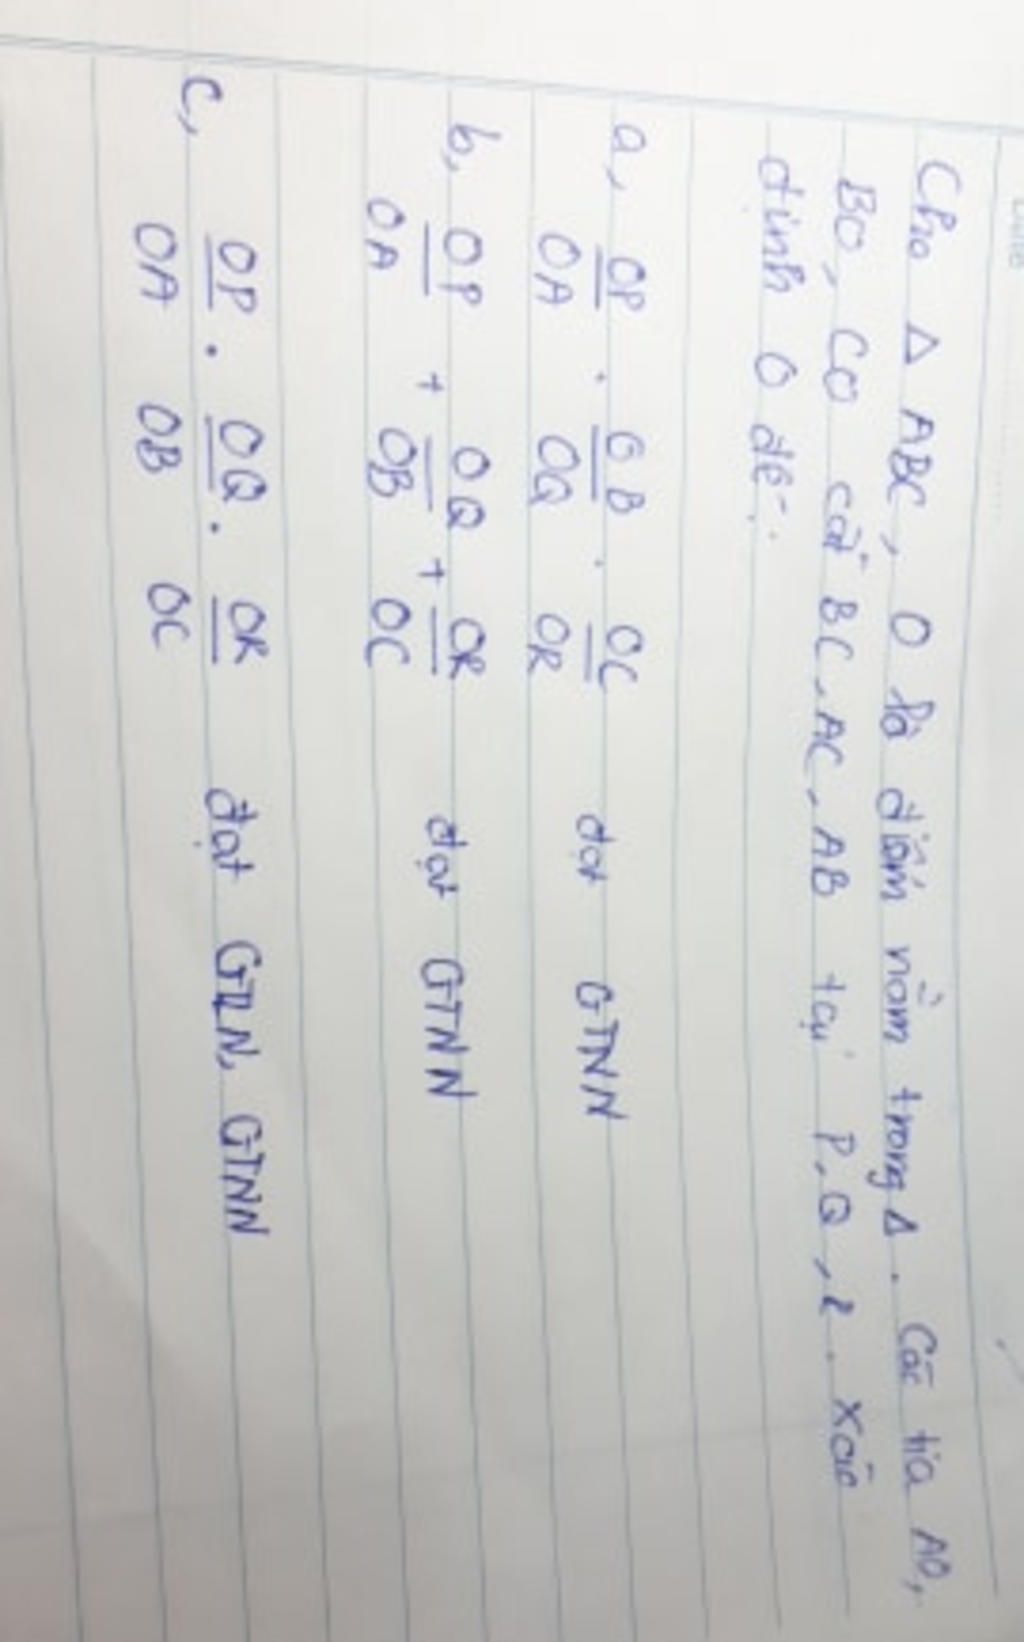 Cho Δ ABC, O là điểm nằm trong Δ. Các tia AO,
BO, CO cắt BC, AC, AB tại P, Q, R. Xác
định O để:
a, OP/OA . OB/OQ . OC/OR đạt GTNN
b, OP/OA + OQ/OB + OR/OC đạt GTNN
c, OP/OA . OQ/OB . OR/OC đạt GTLN, GTNN